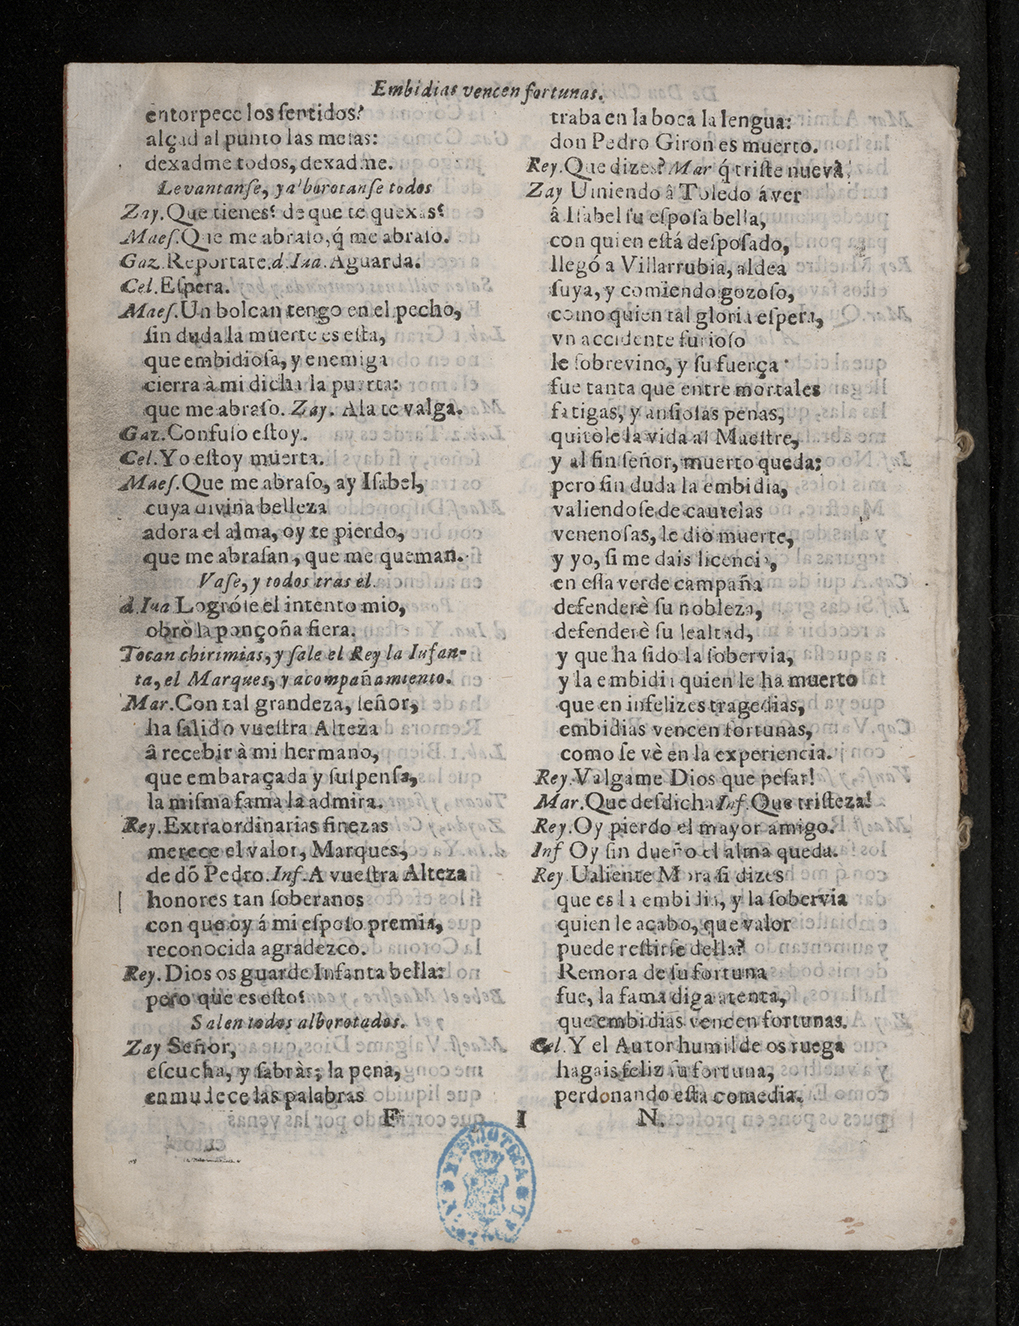 Embidias vencen fortunas.
entorpece los ſentidos?
alçad al punto las meſas:
dexadme todos, dexadme.
Levantanſe, y alborotanſe todos
Zay. Que tienes? de que te quexas?
Maeſ. Que me abraſo, q̃ me abraſo.
Gaz. Reportate. d. Iua. Aguarda.
Cel. Eſpera.
Maeſ. Un bolcan tengo en el pecho,
ſin duda la muerte es eſta,
que embidioſa, y enemiga
cierra à mi dicha la puerta:
que me abraſo. Zay. Ala te valga.
Gaz. Confuſo eſtoy.
Cel. Yo eſtoy muerta.
Maeſ. Que me abraſo, ay Iſabel,
cuya divina belleza
adora el alma, oy te pierdo,
que me abraſan, que me queman.
Vaſe, y todos tras el.
d. Iua Logróſe el intento mio,
obrò la ponçoña fiera.
Tocan chirimias, y ſale el Rey la Infan-
ta, el Marques, y acompañamiento.
Mar. Con tal grandeza, ſeñor,
ha ſalido vueſtra Alteza
â recebir à mi hermano,
que embaraçada y ſuſpenſa,
la miſma fama la admira.
Rey. Extraordinarias finezas
merece el valor, Marques,
de dõ Pedro. Inf. A vueſtra Alteza
honores tan ſoberanos
con que oy á mi eſpoſo premia,
reconocida agradezco.
Rey. Dios os guarde Infanta bella:
pero que es eſto?
Salen todos alborotados.
Zay Señor,
eſcucha, y ſabràs; la pena,
enmudece las palabras
traba en la boca la lengua:
don Pedro Giron es muerto.
Rey. Que dizes? Mar q́ triſte nueva!
Zay Uiniendo â Toledo á ver
â Iſabel ſu eſpoſa bella,
con quien eſtá deſpoſado,
llegó a Villarrubia, aldea
ſuya, y comiendo gozoſo,
como quien tal gloria eſpera,
vn accidente furioſo
le ſobrevino, y ſu fuerça
fue tanta que entre mortales
fatigas, y anſioſas penas,
quitòle la vida al Maeſtre,
y al fin ſeñor, muerto queda:
pero ſin duda la embidia,
valiendoſe de cautelas
venenoſas, le dio muerte,
y yo, ſi me dais licencia,
en eſſa verde campaña
defenderè ſu nobleza,
defenderè ſu lealtad,
y que ha ſido la ſobervia,
y la embidia quien le ha muerto
que en infelizes tragedias,
embidias vencen fortunas,
como ſe vè en la experiencia.
Rey. Valgame Dios que peſar!
Mar. Que deſdicha Inf. Que triſteza!
Rey. Oy pierdo el mayor amigo.
Inf Oy ſin dueño el alma queda.
Rey Ualiente Mora ſi dizes
que es la embidia, y la ſobervia
quien le acabo, que valor
puede reſtirſe della?
Remora de ſu fortuna
fue, la fama diga atenta,
que embidias vencen fortunas.
Cel. Y el Autor humilde os ruega
hagais feliz ſu fortuna,
perdonando eſta comedia.
F I N.